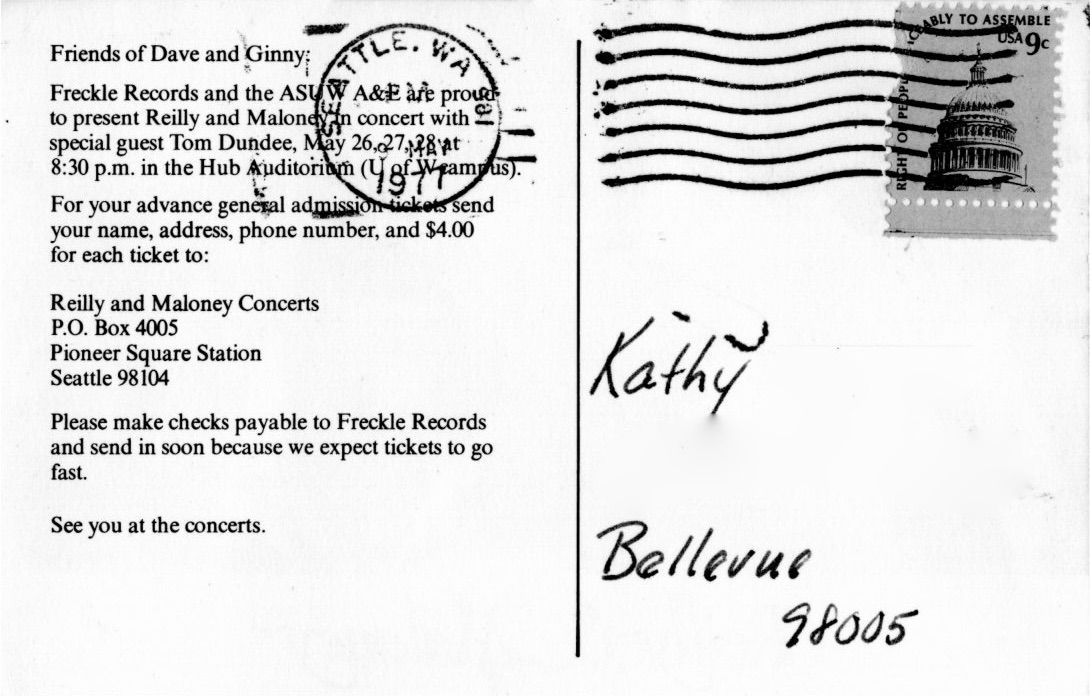 Friends of Dave and Ginny:
Freckle Records and the ASUW A&E are proud
to present Reilly and Maloney in concert with
special guest Tom Dundee, May 26, 27, 28 at
8:30 p.m. in the Hub Auditorium (U of W campus).
For your advance general admission tickets send
your name, address, phone number, and $4.00
for each ticket to:
Reilly and Maloney Concerts
P.O. Box 4005
Pioneer Square Station
Seattle 98104
Please make checks payable to Freckle Records
and send in soon because we expect tickets to go
fast.
See you at the concerts.
SEATTLE, WA 981
MAY
1977
RIGHT OF PEOPLE
ABLY TO ASSEMBLE
USA 9c
Kathy
Bellevue
98005